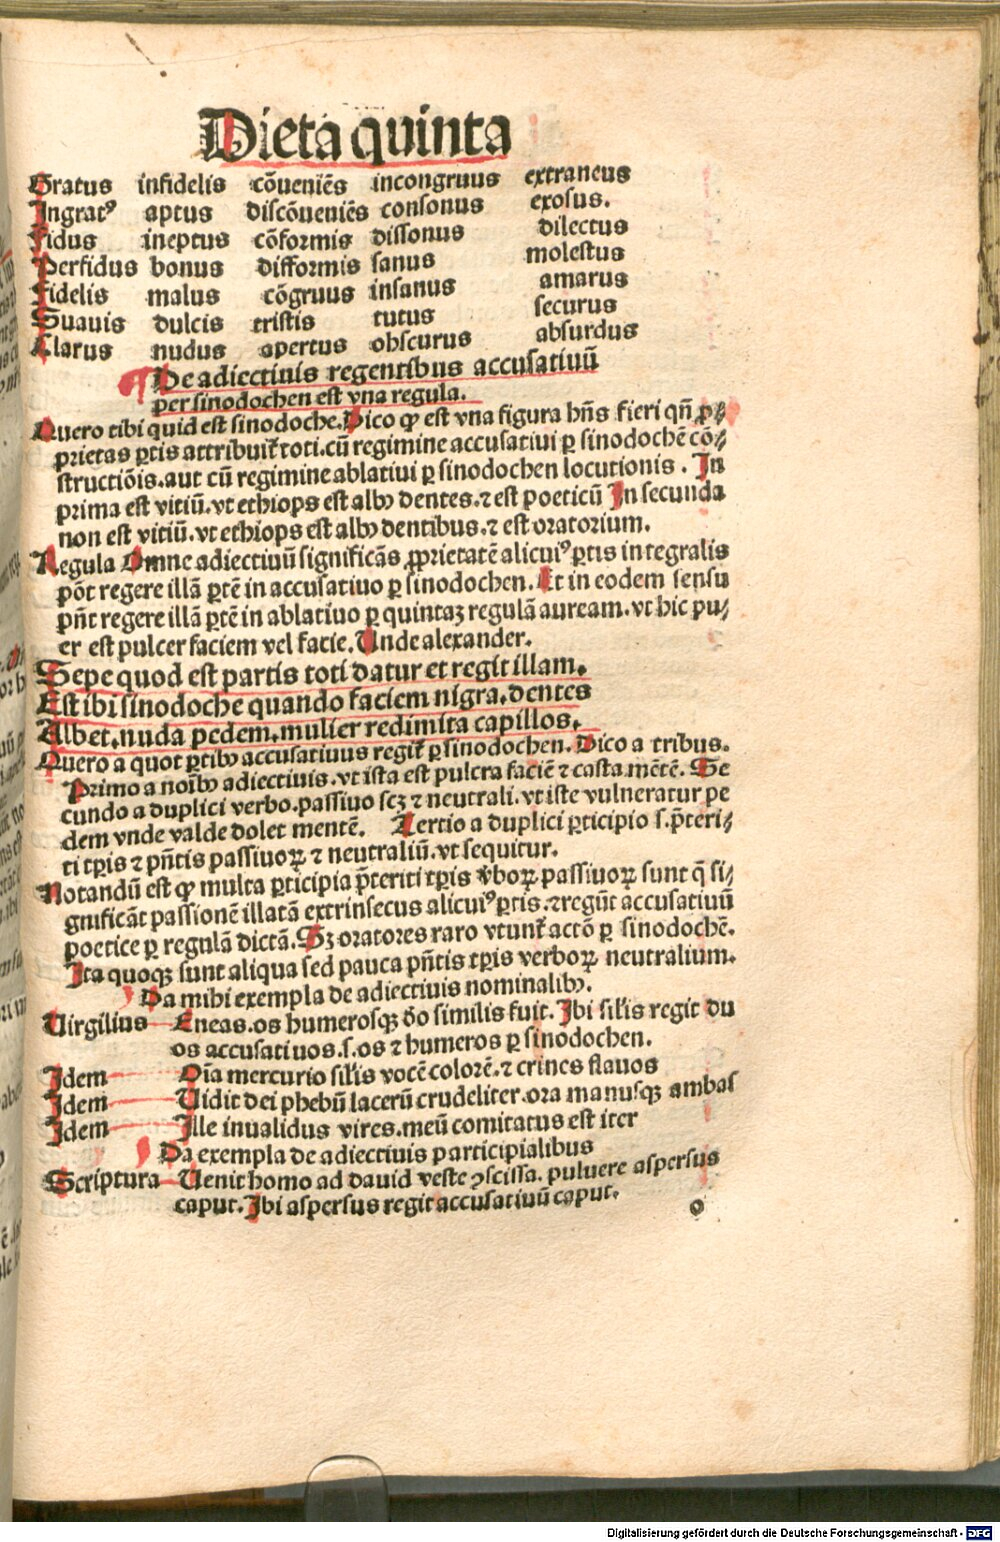 Dieta quinta
Gratus infidelis cõueniẽs incongruus extraneus
Ingratꝰ aptus discõueniẽs consonus exosus.
Fidus ineptus cõformis dissonus dilectus
Perfidus bonus difformis sanus molestus
Fidelis malus cõgruus insanus amarus
Suauis dulcis tristis tutus securus
Clarus nudus apertus obscurus absurdus
De adiectiuis regentibus accusatiuũ
per sinodochen est vna regula.
Quero tibi quid est sinodoche. Dico ꝙ est vna figura hñs fieri qñ ꝓ⸗
prietas ꝑtis attribuit̃ toti. cũ regimine accusatiui ꝑ sinodochẽ cõ⸗
structiõis. aut cũ regimine ablatiui ꝑ sinodochen locutionis. In
prima est vitiũ. vt ethiops est albꝰ dentes. ⁊ est poeticũ In secunda
non est vitiũ. vt ethiops est albꝰ dentibus. ⁊ est oratorium.
Regula Omne adiectiuũ significãs ꝓprietatẽ alicuiꝰ ꝑtis integralis
põt regere illã ꝑtẽ in accusatiuo ꝑ sinodochen. Et in eodem sensu
pñt regere illã ꝑtẽ in ablatiuo ꝑ quintaꝫ regulã auream. vt hic pu⸗
er est pulcer faciem vel facie. Unde alexander.
Sepe quod est partis toti datur et regit illam.
Est ibi sinodoche quando faciem nigra. dentes
Albet. nuda pedem. mulier redimita capillos.
Quero a quot ꝑtibꝰ accusatiuus regit̃ ꝑ sinodochen. Dico a tribus.
Primo a noĩbꝰ adiectiuis. vt ista est pulcra faciẽ ⁊ casta mẽtẽ. Se
cundo a duplici verbo. passiuo scꝫ ⁊ neutrali. vt iste vulneratur pe
dem vnde valde dolet mentẽ. Tertio a duplici ꝑticipio s. p̃teri⸗
ti tꝑis ⁊ pñtis passiuoꝝ ⁊ neutraliũ. vt sequitur.
Notandũ est ꝙ multa ꝑticipia p̃teriti tꝑis v̾boꝝ passiuoꝝ sunt q̃ si⸗
gnificãt passionẽ illatã extrinsecus alicuiꝰ ꝑtis. ⁊ regũt accusatiuũ
poetice ꝑ regulã dictã. Sꝫ oratores raro vtunt̃ actõ ꝑ sinodochẽ.
Ita quoqꝫ sunt aliqua sed pauca pñtis tꝑis verboꝝ neutralium.
Da mihi exempla de adiectiuis nominalibꝰ.
Uirgilius Eneas. os humerosqꝫ deo similis fuit. Ibi sil̃is regit du
os accusatiuos. s. os ⁊ humeros ꝑ sinodochen.
Idem Oĩa mercurio sil̃is vocẽ colorẽ. ⁊ crines flauos
Idem Uidit dei phebũ lacerũ crudeliter. ora manusqꝫ ambas
Idem Ille inualidus vires. meũ comitatus est iter
Da exempla de adiectiuis participialibus
Scriptura Uenit homo ad dauid veste ꝯscissa. puluere aspersus
caput. Ibi aspersus regit accusatiuũ caput.
o
Digitalisierung gefördert durch die Deutsche Forschungsgemeinschaft - DFG